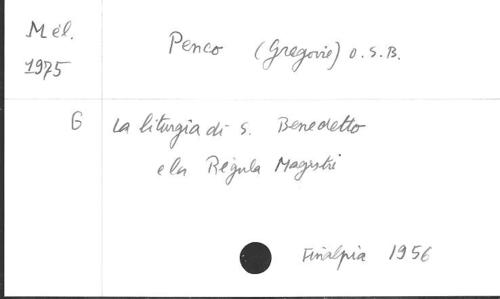 Mél.
1975
Penco (Gregorie) O.S.B.
G
La liturgia di S. Benedetto
e la Regula Magistri
Finalpia 1956